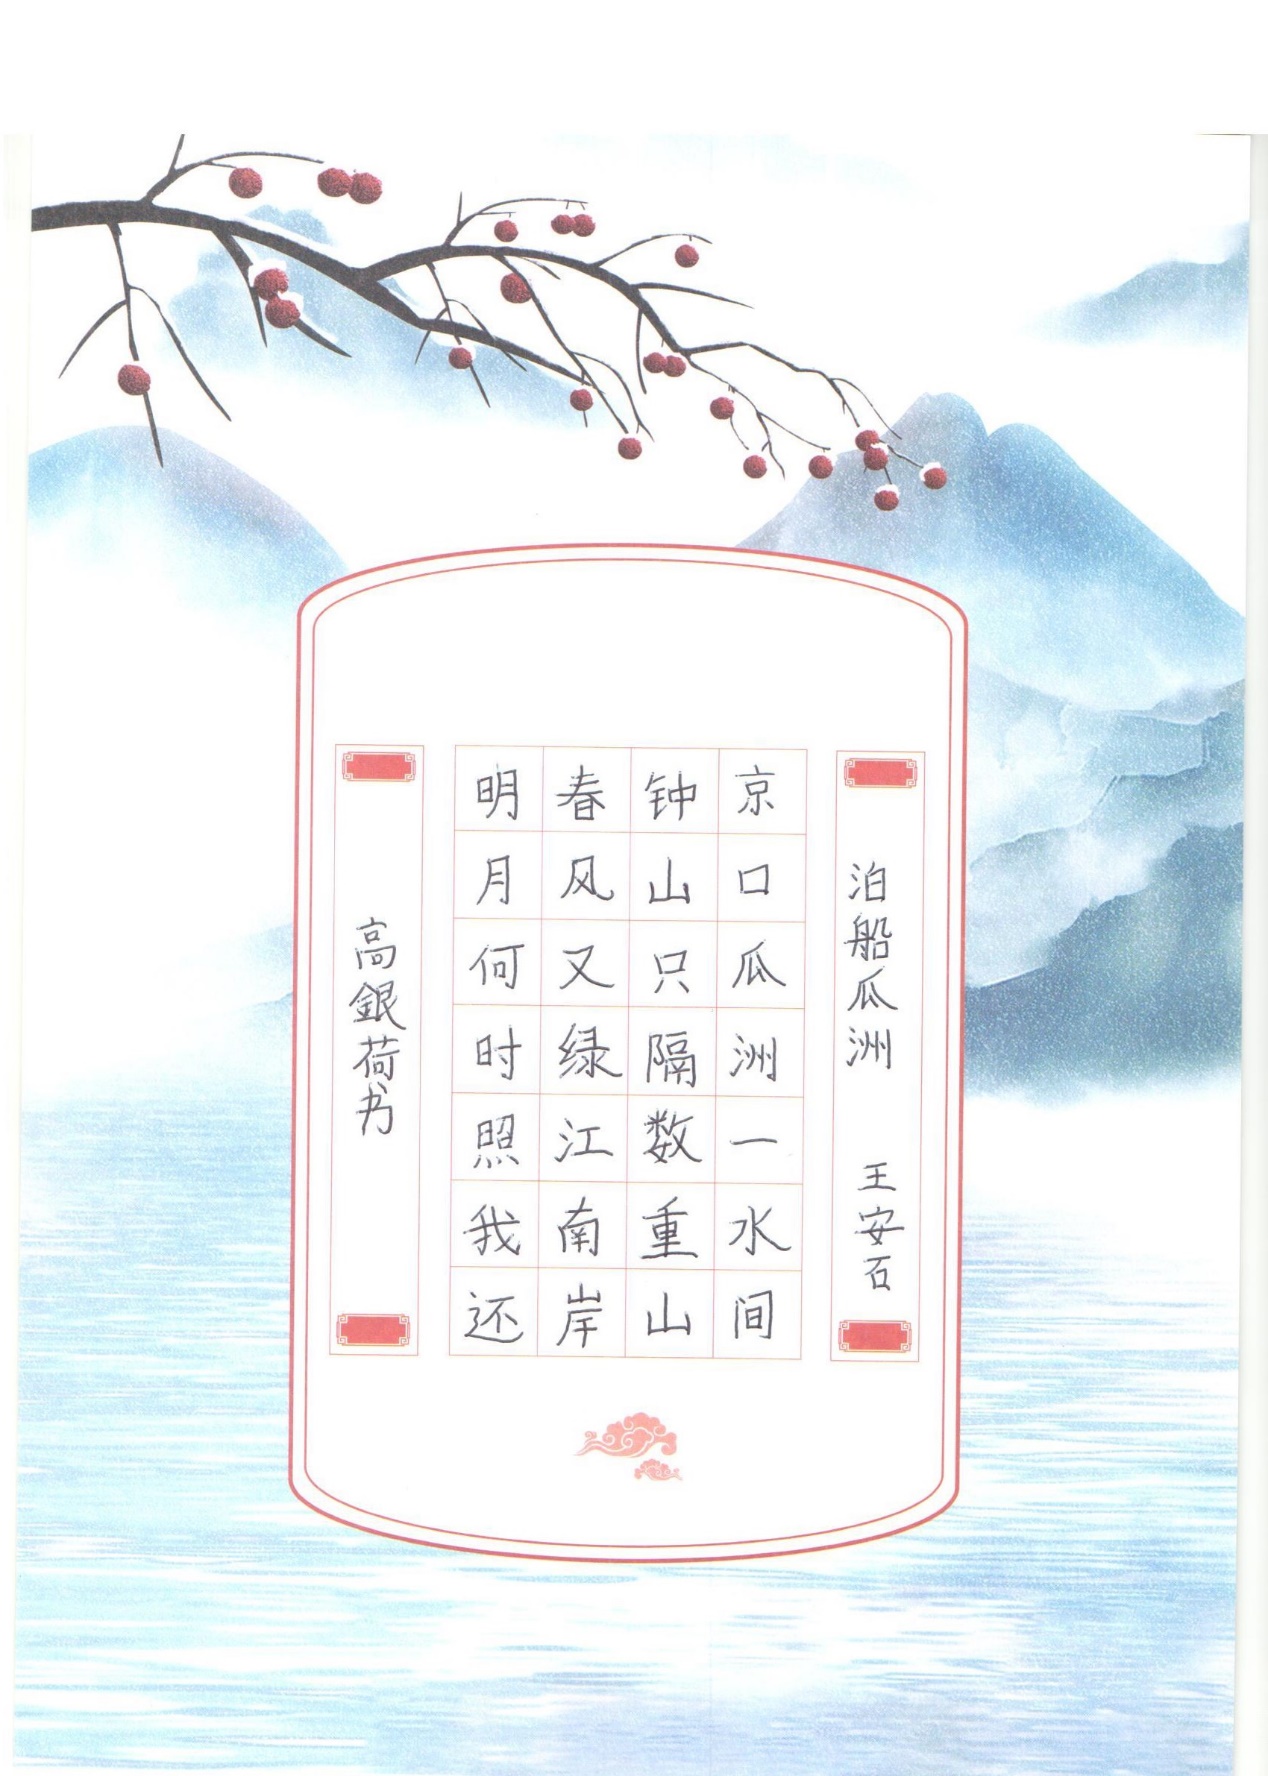 泊船瓜洲 王安石
京口瓜洲一水间
钟山只隔数重山
春风又绿江南岸
明月何时照我还
高銀荷书